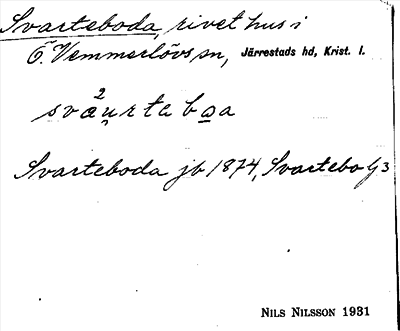 Svarteboda, rivet hus i
Ö. Vemmerlövs sn, Järrestads hd, Krist. l.
Svarteboda jb 1874, Svartebo G3
NILS NILSSON 1931